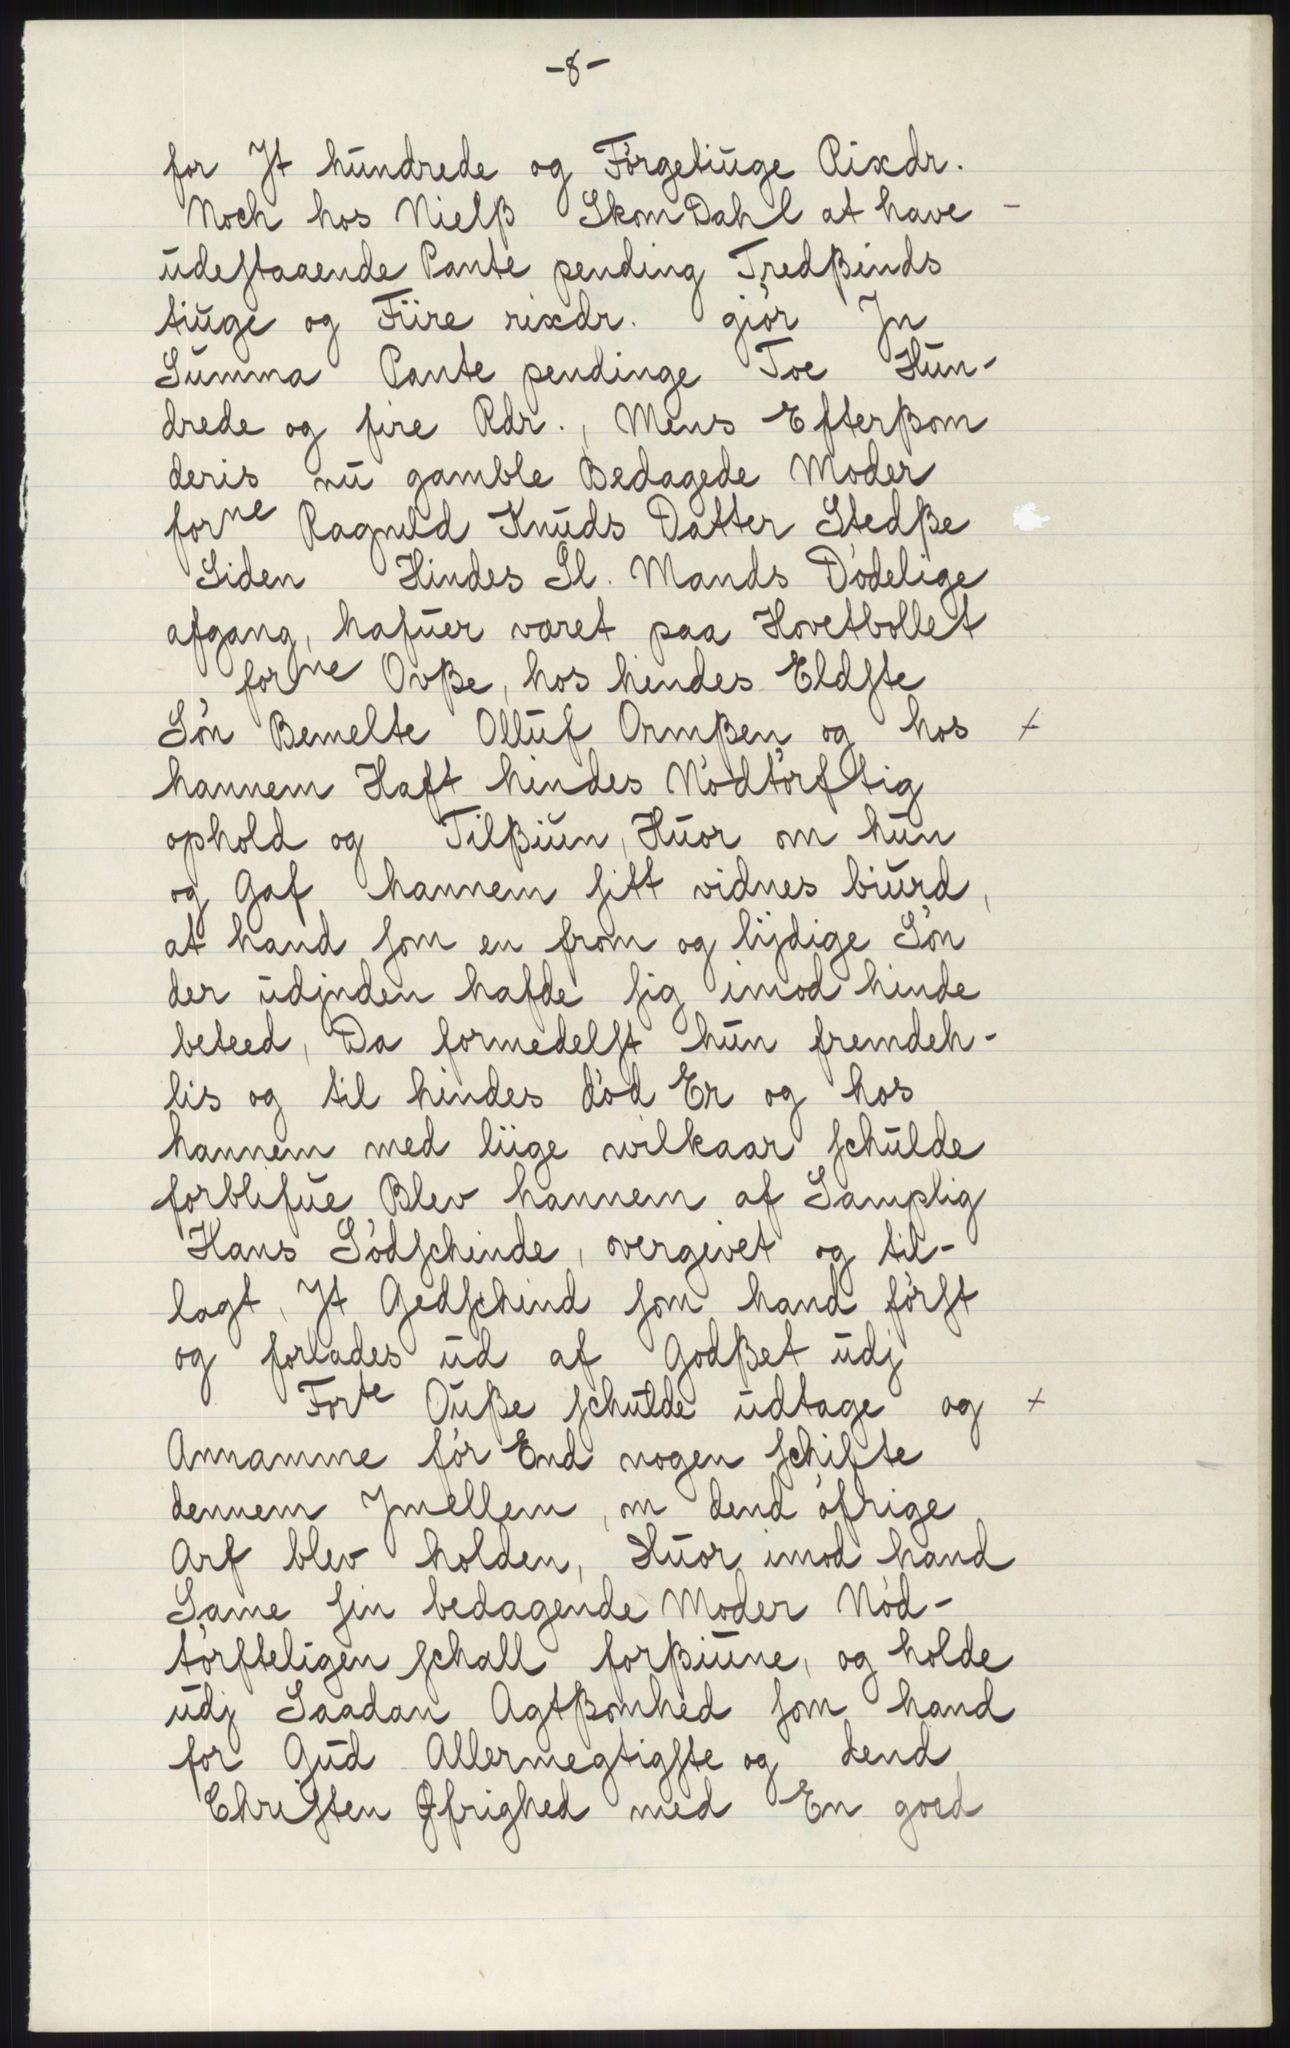 -8-
for Jt hundrede og Förgetiuge Rixdr.
Noch hos Nielß Skom Dahl at have -
udestaaende Pante pending Tredßinds
tiuge og Fiire rixdr. giör Jn
Summa Pante pendinge Toe Hun-
drede og fire Rdr., Mens Efterßom
deris nu gamble Bedagede Moder
forne Ragnild Knuds Datter Stedße
Siden Hindes Sl. Mands Dödelige
afgang, hafuer været paa Hovetbollet
forne Ovße, hos hendes Eldste
Sön Bemelte Olluf Ormßen og hos +
hannem Haft hindes Nödtörftig
ophold og Tilßiun, Huor om hun
og Gaf hannem sitt vidnes biurd,
at hand som en from og lijdige Sön
der udjnden hafde sig imod hinde
beteed, Da formedelst hun fremdeh-
lis og til hindes död Er og hos
hannem med liige wilkaar schulde
forblifue Blev hannem af Samplig
Hans Södschinde, overgivet og til-
lagt, Jt Gedschind som hand först
og forlades ud af Godßet udj
Forte Ouße schulde udtage og +
Annamme för End nogen schifte
dennem Jmellem, om dend öfrige
Arf blev holden, Huor imod hand
Same sin bedagende Moder Nöd-
törfteligen schall forßiune, og holde
udj Saadan Agtßomhed som hand
for Gud Allermegtigste og dend
Christen Øfrighed med En goed